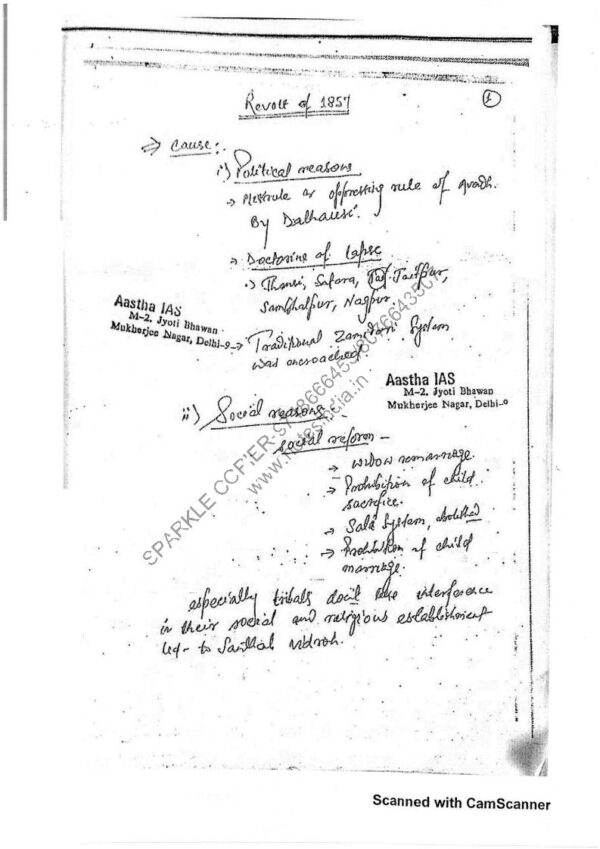 Revolt of 1857
1
⇒ Cause:
i) Political reasons
→ Mesrule or oppressing rule of Avadh.
By Dalhausi.
→ Doctorine of lapse
→ Jhansi, Satara, Jaitpur,
Sambhalpur, Nagpur.
Aastha IAS
M-2. Jyoti Bhawan
Mukherjee Nagar, Delhi-9
→ Traditional Zamidari System
was encroached
Aastha IAS
M-2. Jyoti Bhawan
Mukherjee Nagar, Delhi-9
ii) Social reasons
social reform -
→ widow remarriage.
→ Prohibition of child
sacrifice.
→ Sati System, abolished
→ Prohibition of child
marriage.
especially tribals don't like interference
in their social and religious establishment
led to Santhal vidroh.
SPARKLE
Scanned with CamScanner